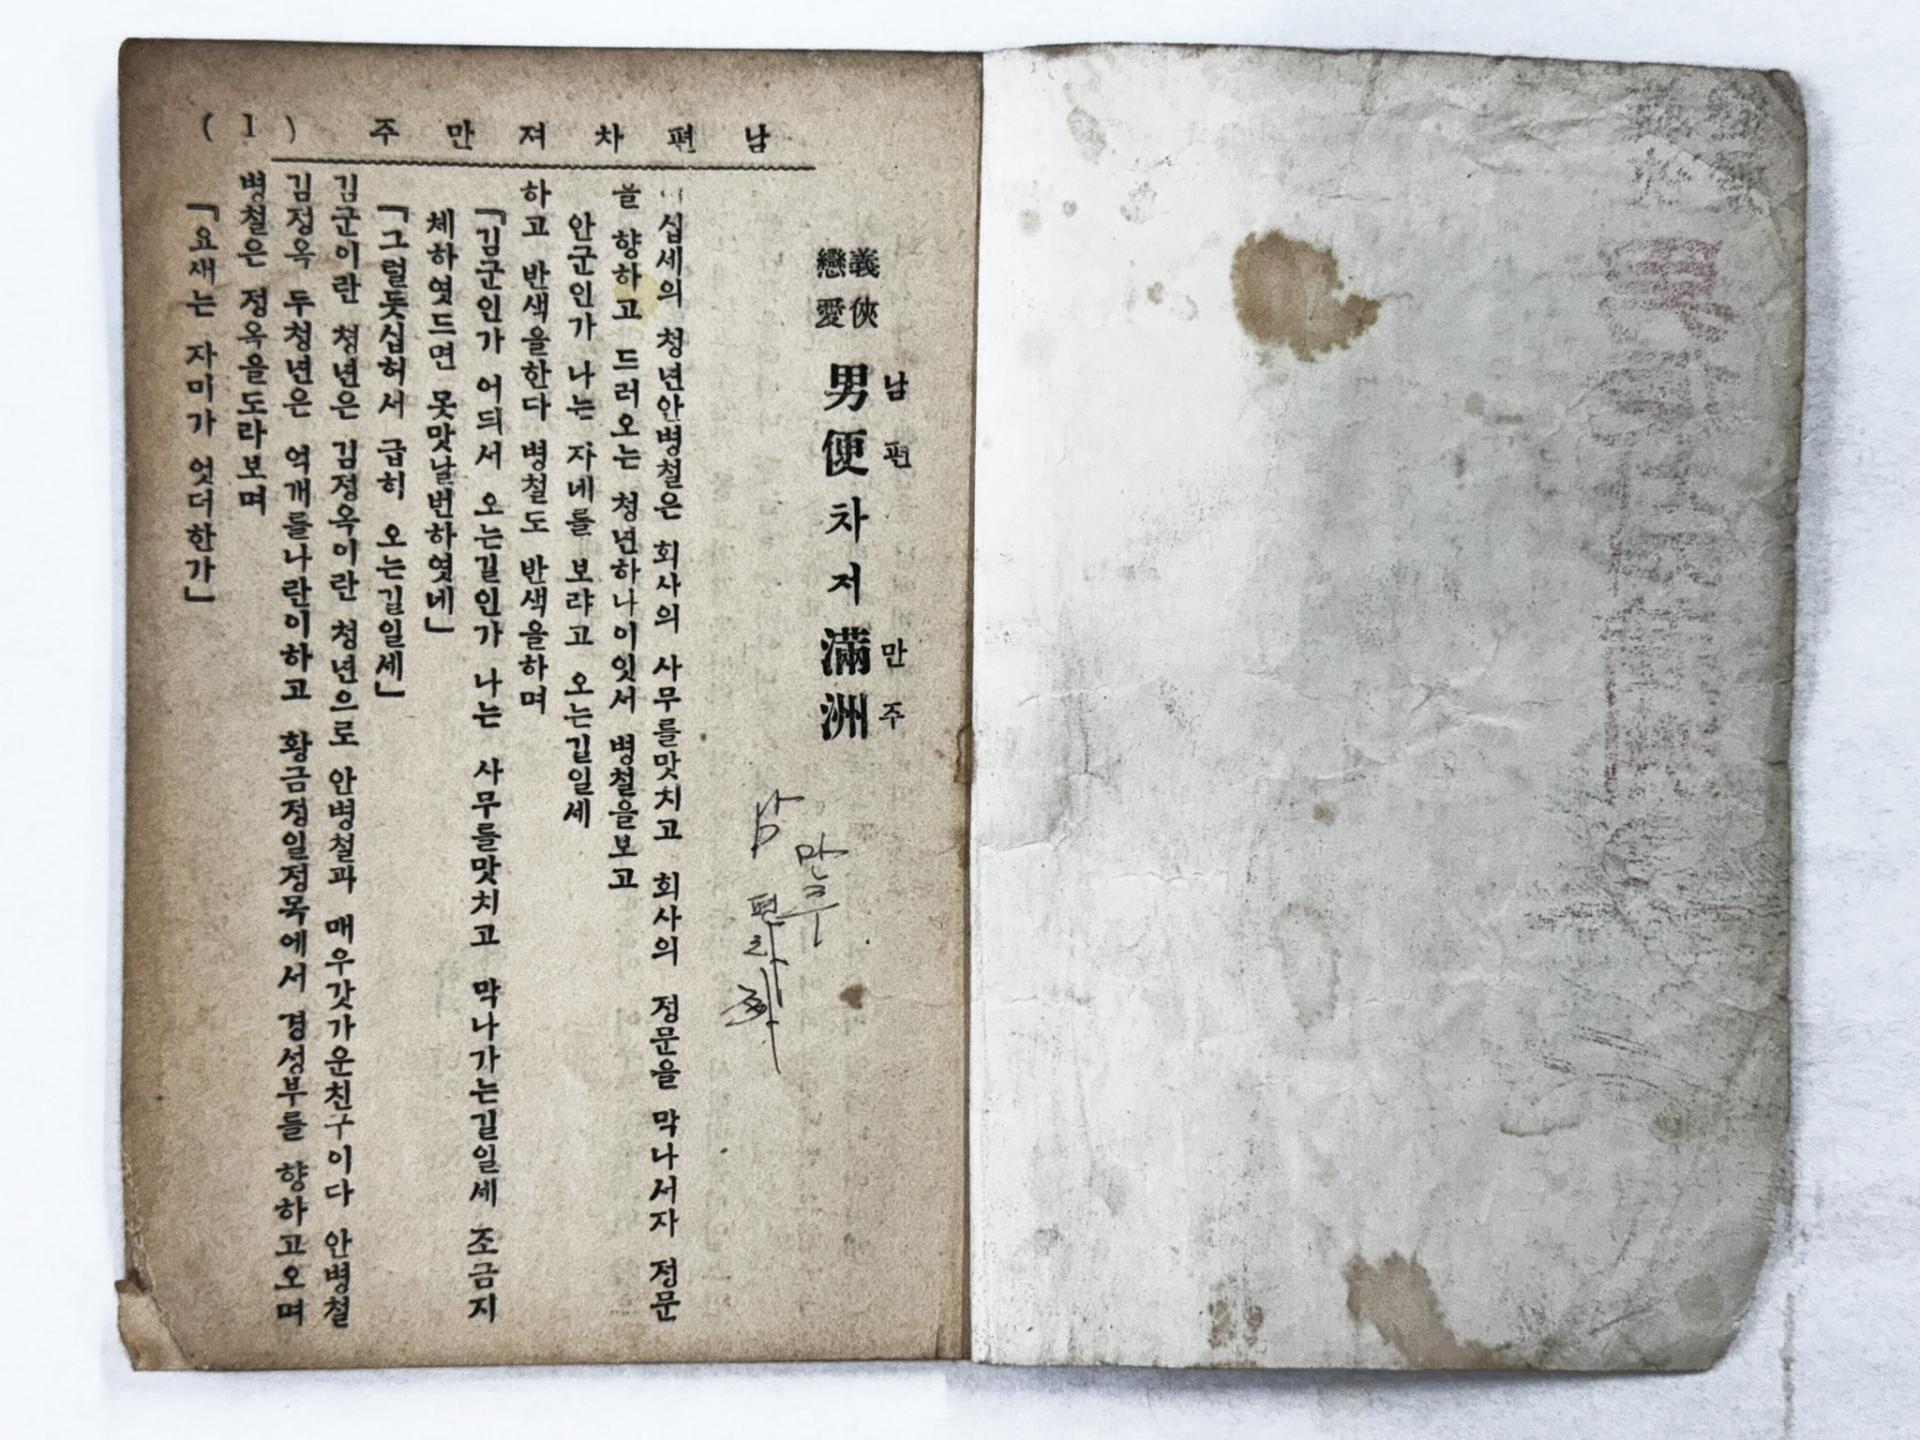 남편차져만주 (1)
義俠
戀愛
男便차저滿洲
남편 만주
만주
남편차
십세의 청년안병철은 회사의 사무를맛치고 회사의 정문을 막나서자 정문
을 향하고 드러오는 청년하나이잇서 병철을보고
안군인가 나는 자네를 보랴고 오는길일세
하고 반색을한다 병철도 반색을하며
『김군인가 어듸서 오는길인가 나는 사무를맛치고 막나가는길일세 조금지
체하엿드면 못맛날번하엿네』
『그럴듯십허서 급히 오는길일세』
김군이란 청년은 김정옥이란 청년으로 안병철과 매우갓가운친구이다 안병철
김정옥 두청년은 억개를나란이하고 황금정일정목에서 경성부를 향하고오며
병철은 정옥을도라보며
『요새는 자미가 엇더한가』